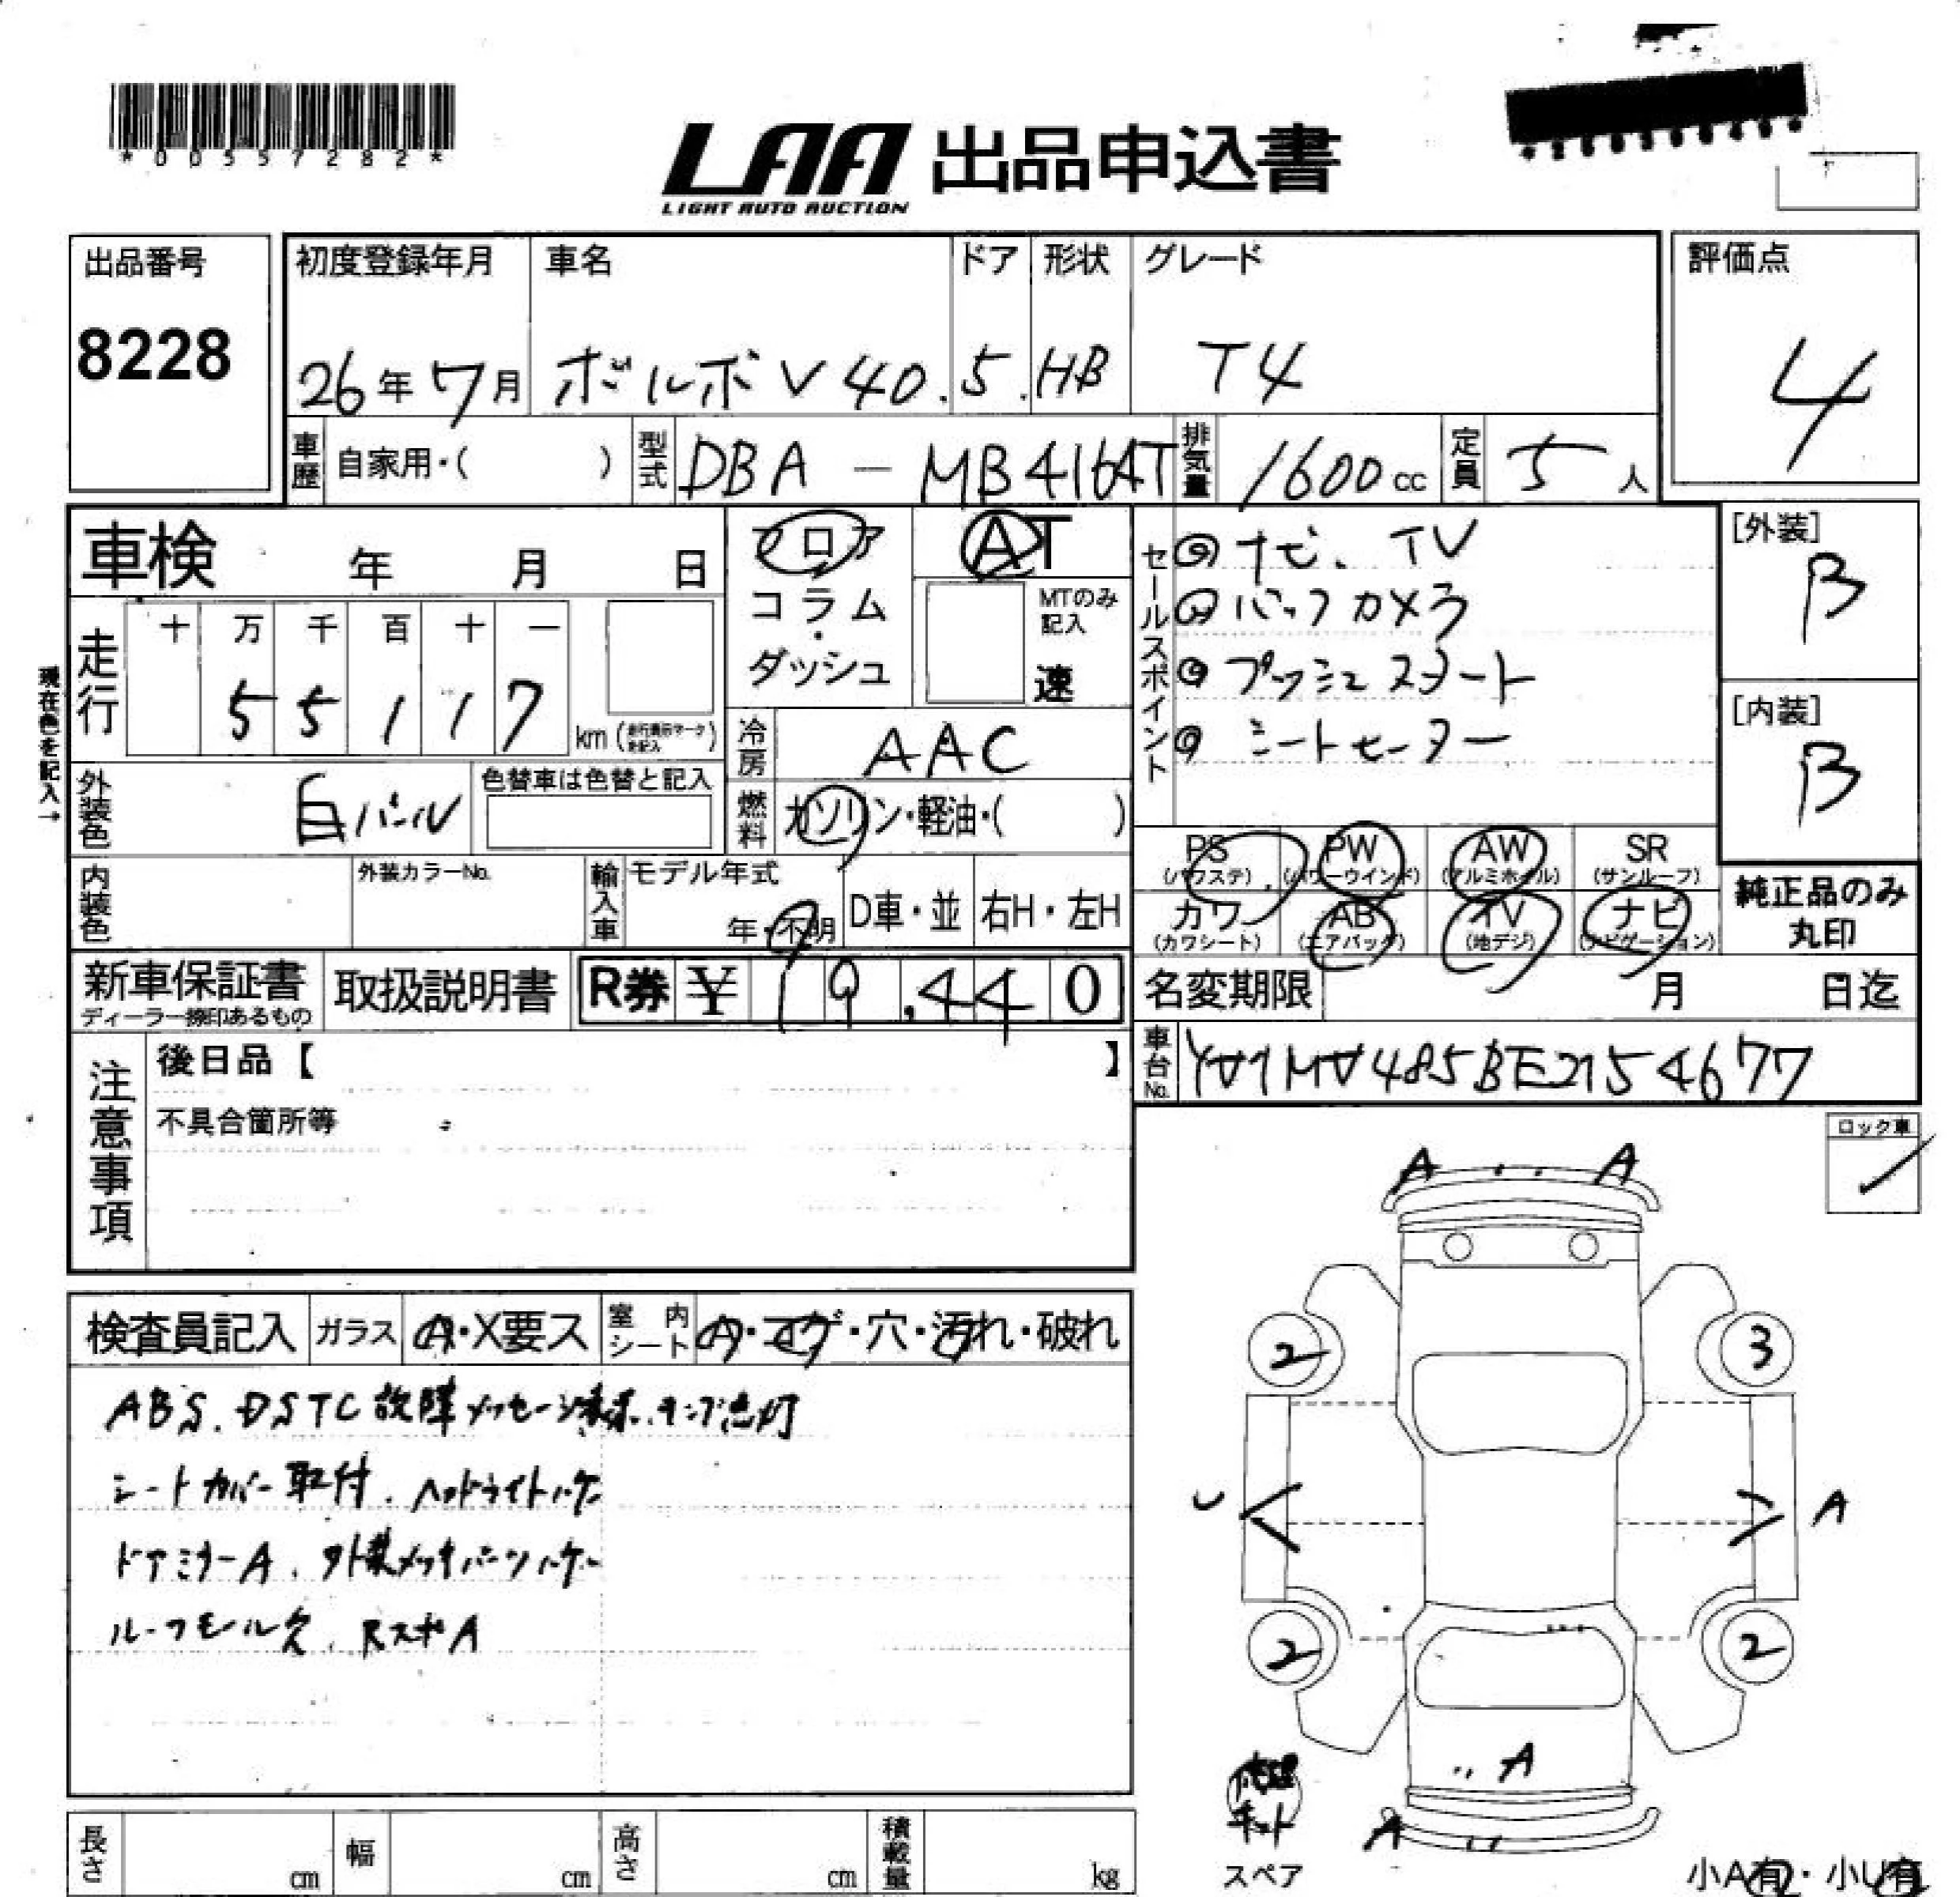 *00557282*
LAA 出品申込書
LIGHT AUTO AUCTION
出品番号
8228
初度登録年月 車名 ドア 形状 グレード
26年7月 ボルボV40. 5. HB T4
評価点
4
車歴 自家用・( ) 型式 DBA-MB4164T 排気量 1600cc 定員 5人
車検 年 月 日
フロア
コラム
・
ダッシュ
AT
MTのみ
記入
速
現在色を記入→
走行 十 万 千 百 十 一
5 5 1 1 7
km
冷房 AAC
外装色 白パール 色替車は色替と記入
燃料 ガソリン・軽油・( )
内装色 外装カラーNo. 輸入車 モデル年式
年・不明 D車・並 右H・左H
新車保証書 取扱説明書 R券 ¥ 19,440
ディーラー捺印あるもの
セールスポイント
◎ナビ、TV
◎バックカメラ
◎プッシュスタート
◎シートヒーター
[外装]
B
[内装]
B
PS PW AW SR
(パワステ) (パワーウインド) (アルミホイル) (サンルーフ)
カワ AB TV ナビ
(カワシート) (エアバッグ) (地デジ) (ナビゲーション)
純正品のみ
丸印
名変期限 月 日迄
車台No. YV1MV485BE2154677
注意事項
後日品【 】
不具合箇所等
ロック車
検査員記入 ガラス A・X要ス 室内シート A・コゲ・穴・汚れ・破れ
ABS、DSTC故障メッセージ表示、ランプ点灯
シートカバー取付、ヘッドライトハゲ
ドアミラーA、外装メッキパーツハゲ
ルーフモール欠、RスポA
A A
2 3
A
2 2
A
A
修理
キット
スペア
小A有・小U有
長さ cm 幅 cm 高さ cm 積載量 kg